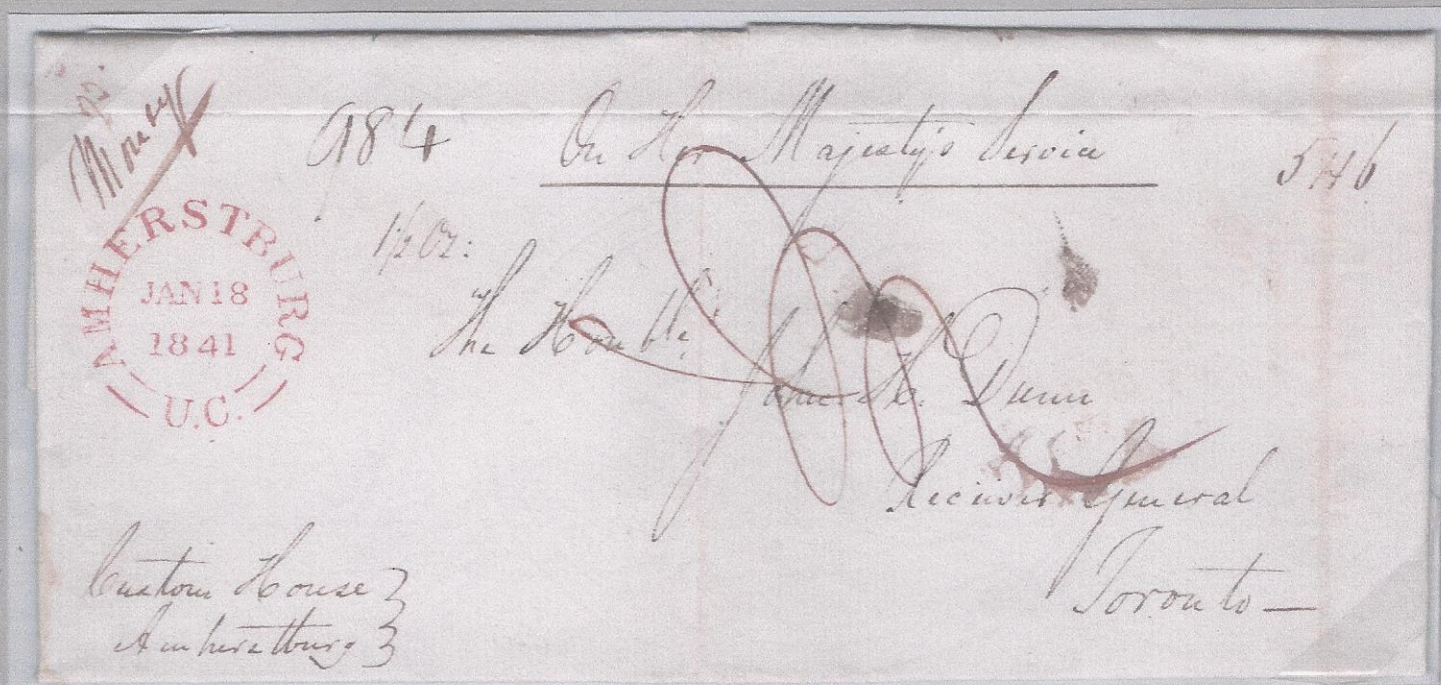 Money
984
On Her Majesty's Service
546
1½ Oz:
AMHERSTBURG
JAN 18
1841
U.C.
The Honble.
John H. Dunn
Receiver General
Toronto —
Custom House }
Amherstburg }